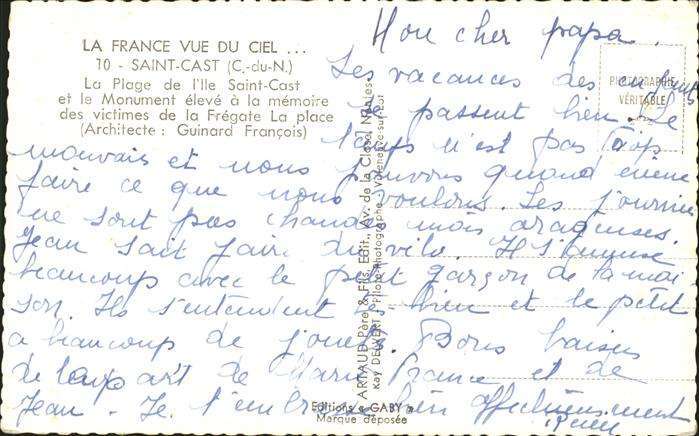 LA FRANCE VUE DU CIEL ...
10 - SAINT-CAST (C.-du-N.)
La Plage de l'Ile Saint-Cast
et le Monument élevé à la mémoire
des victimes de la Frégate La place
(Architecte : Guinard François)
PHOTOGRAPHIE
VÉRITABLE
ARTAUD Père & Fils, Edit., Av. de la Close, Nantes
Ray DELVERT, Pilote-Photographe, Villeneuve-sur-Lot
Editions "GABY"
Marque déposée
Mon cher papa.
Les vacances des enfants
se passent bien. Le
temps n'est pas trop
mauvais et nous pouvons quand même
faire ce que nous voulons. Les journées
ne sont pas chaudes mais orageuses.
Jean sait faire du vélo. Il s'amuse
beaucoup avec le petit garçon de la mai
son. Ils s'entendent bien et le petit
a beaucoup de jouets. Bons baisers
de la part de Marie France et de
Jean. Je t'embrasse bien affectueusement